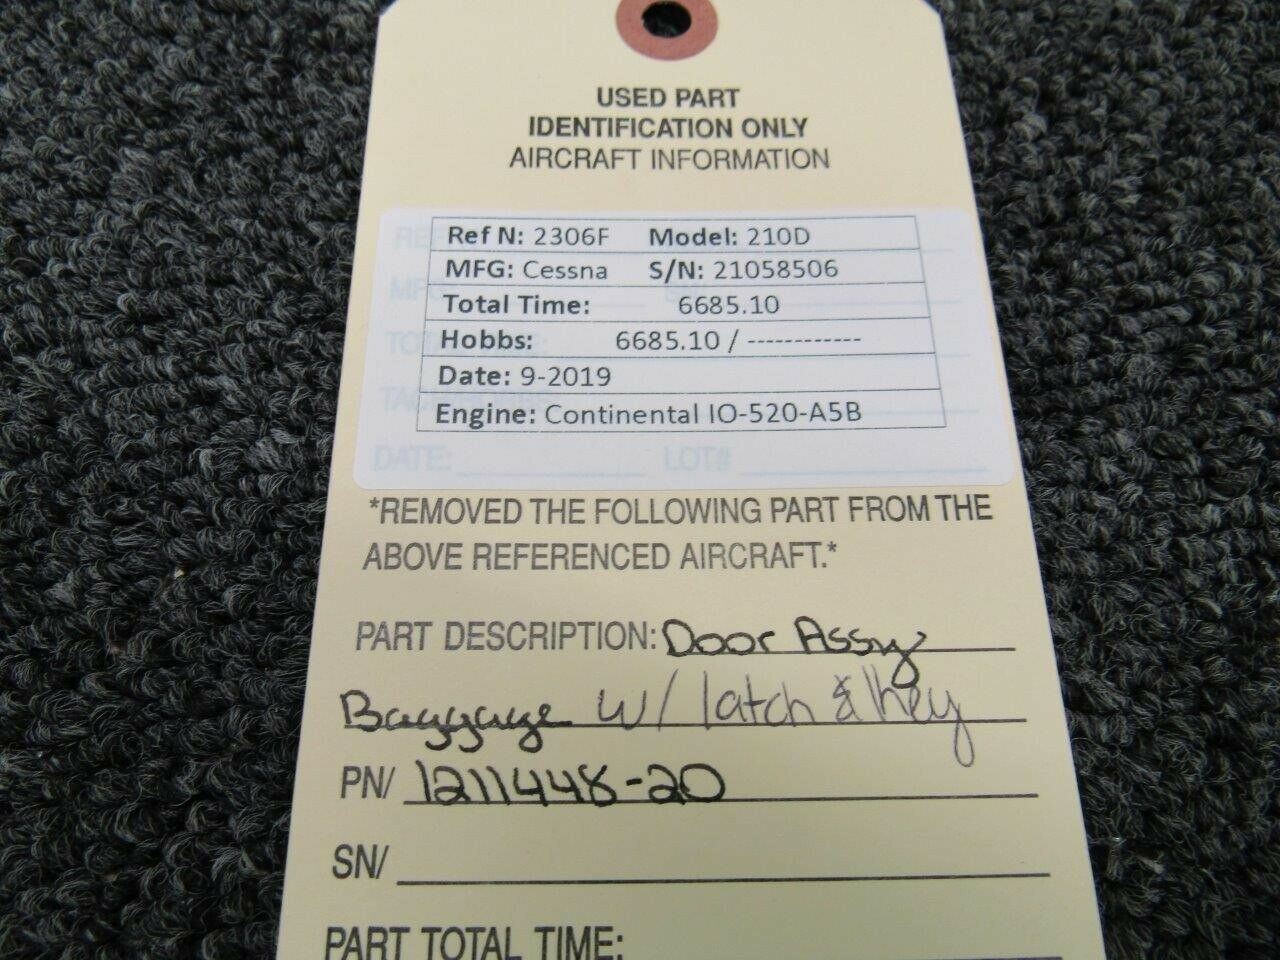 USED PART
IDENTIFICATION ONLY
AIRCRAFT INFORMATION
Ref N: 2306F Model: 210D
MFG: Cessna S/N: 21058506
Total Time: 6685.10
Hobbs: 6685.10 / ------------
Date: 9-2019
Engine: Continental IO-520-A5B
DATE: LOT#
*REMOVED THE FOLLOWING PART FROM THE
ABOVE REFERENCED AIRCRAFT.*
PART DESCRIPTION: Door Assy
Baggage w/ latch & key
PN/ 1211448-20
SN/
PART TOTAL TIME: